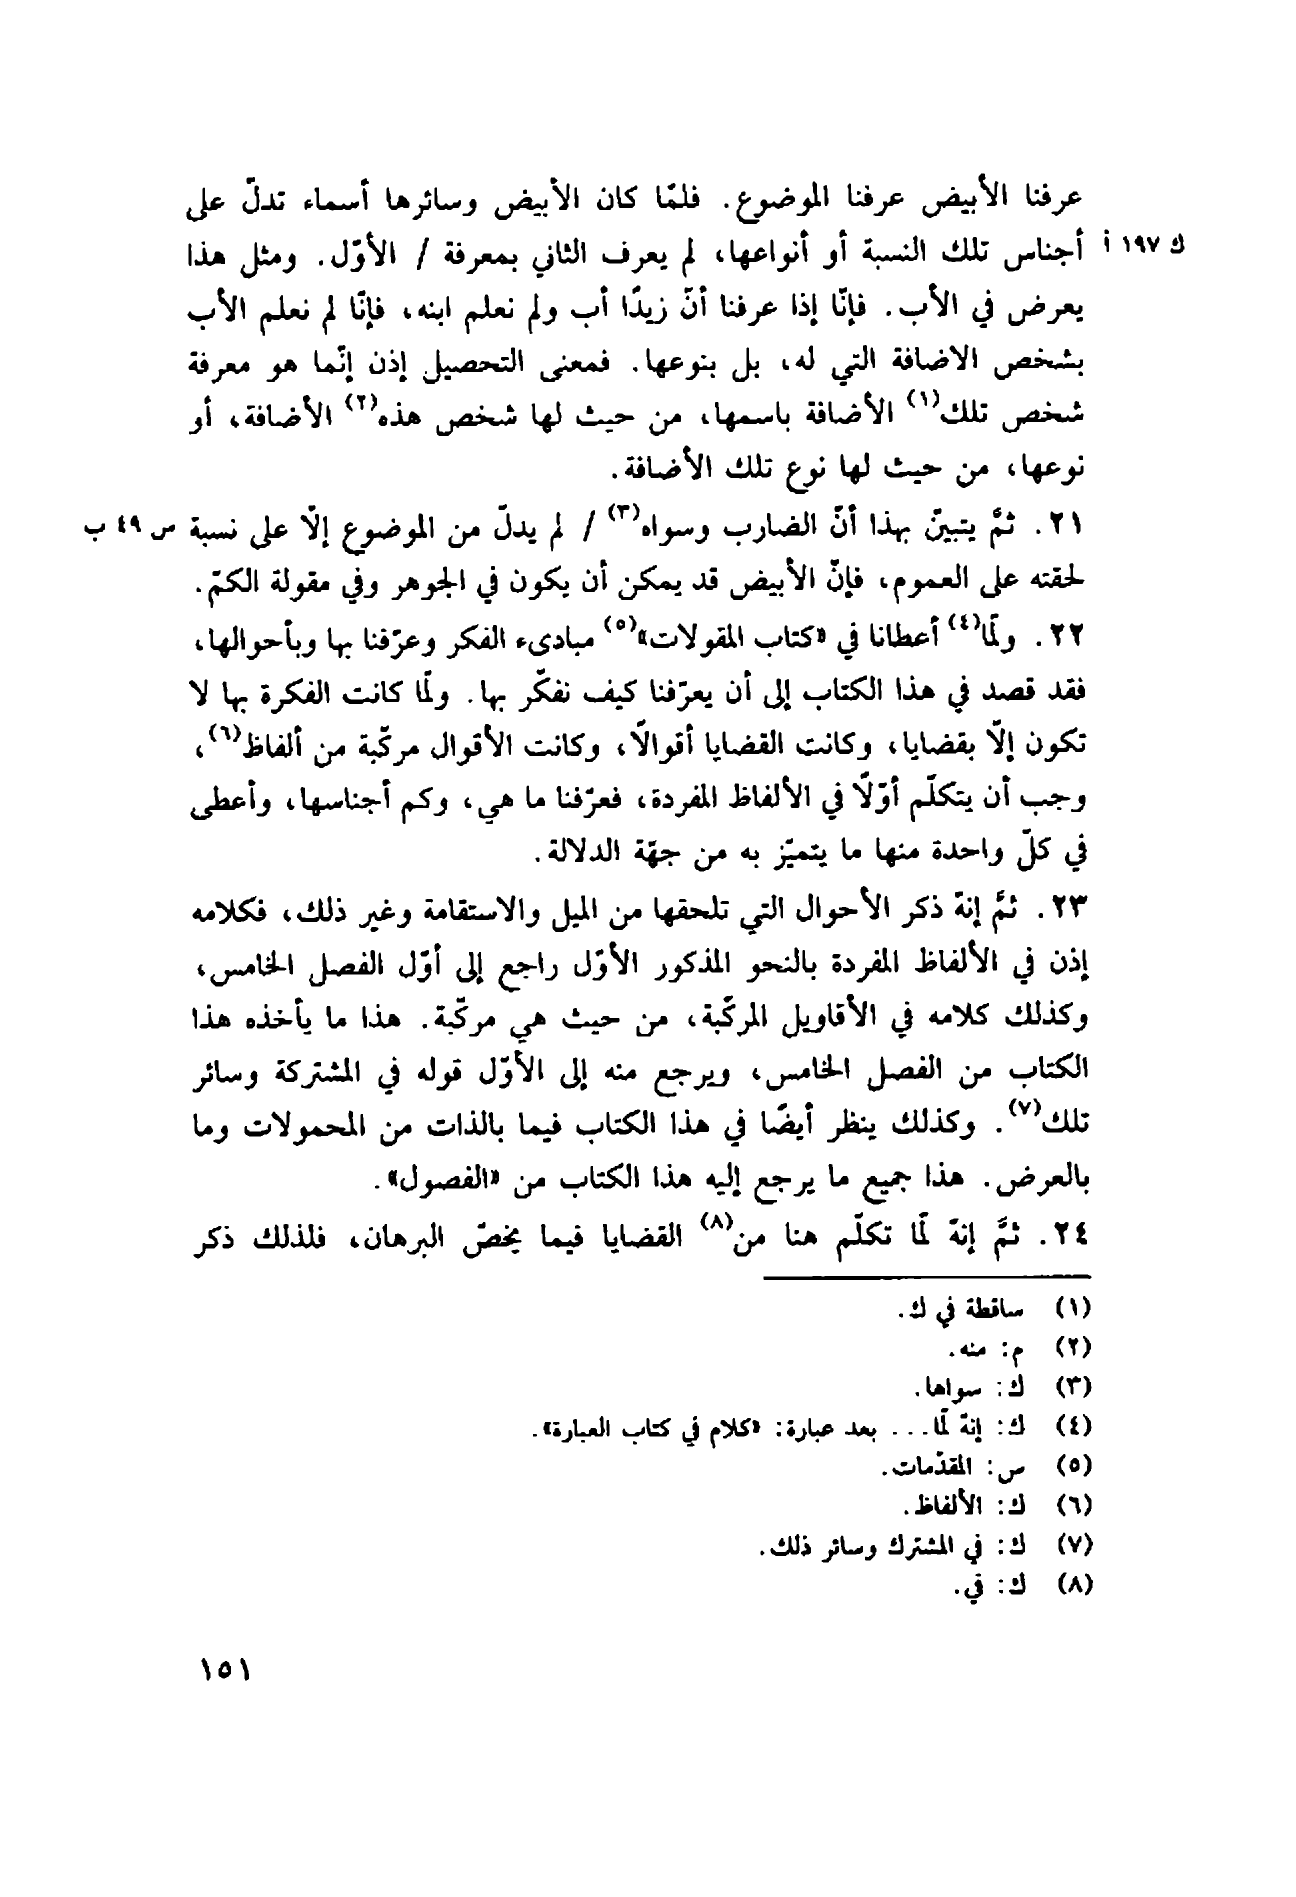 عرفنا الأبيض عرفنا الموضوع. فلمّا كان الأبيض وسائرها أسماء تدلّ على
ك ١٩٧ أ أجناس تلك النسبة أو أنواعها، لم يعرف الثاني بمعرفة / الأوّل. ومثل هذا
يعرض في الأب. فإنّا إذا عرفنا أنّ زيدًا أب ولم نعلم ابنه، فإنّا لم نعلم الأب
بشخص الاضافة التي له، بل بنوعها. فمعنى التحصيل إذن إنّما هو معرفة
شخص تلك(١) الأضافة باسمها، من حيث لها شخص هذه(٢) الأضافة، أو
نوعها، من حيث لها نوع تلك الأضافة.
٢١. ثمَّ يتبينّ بهذا أنّ الضارب وسواه(٣) / لم يدلّ من الموضوع إلّا على نسبة ص ٤٩ ب
لحقته على العموم، فإنّ الأبيض قد يمكن أن يكون في الجوهر وفي مقولة الكمّ.
٢٢. ولمّا(٤) أعطانا في «كتاب المقولات»(٥) مبادىء الفكر وعرّفنا بها وبأحوالها،
فقد قصد في هذا الكتاب إلى أن يعرّفنا كيف نفكّر بها. ولمّا كانت الفكرة بها لا
تكون إلّا بقضايا، وكانت القضايا أقوالًا، وكانت الأقوال مركّبة من ألفاظ(٦)،
وجب أن يتكلّم أوّلًا في الألفاظ المفردة، فعرّفنا ما هي، وكم أجناسها، وأعطى
في كلّ واحدة منها ما يتميّز به من جهّة الدلالة.
٢٣. ثمَّ إنهّ ذكر الأحوال التي تلحقها من الميل والاستقامة وغير ذلك، فكلامه
إذن في الألفاظ المفردة بالنحو المذكور الأوّل راجع إلى أوّل الفصل الخامس،
وكذلك كلامه في الأقاويل المركّبة، من حيث هي مركّبة. هذا ما يأخذه هذا
الكتاب من الفصل الخامس، ويرجع منه إلى الأوّل قوله في المشتركة وسائر
تلك(٧). وكذلك ينظر أيضًا في هذا الكتاب فيما بالذات من المحمولات وما
بالعرض. هذا جميع ما يرجع إليه هذا الكتاب من «الفصول».
٢٤. ثمَّ إنهّ لمّا تكلّم هنا من(٨) القضايا فيما يخصّ البرهان، فلذلك ذكر
(١) ساقطة في ك.
(٢) م: منه.
(٣) ك: سواها.
(٤) ك: إنهّ لمّا... بعد عبارة: «كلام في كتاب العبارة».
(٥) ص: المقدّمات.
(٦) ك: الألفاظ.
(٧) ك: في المشترك وسائر ذلك.
(٨) ك: في.
١٥١